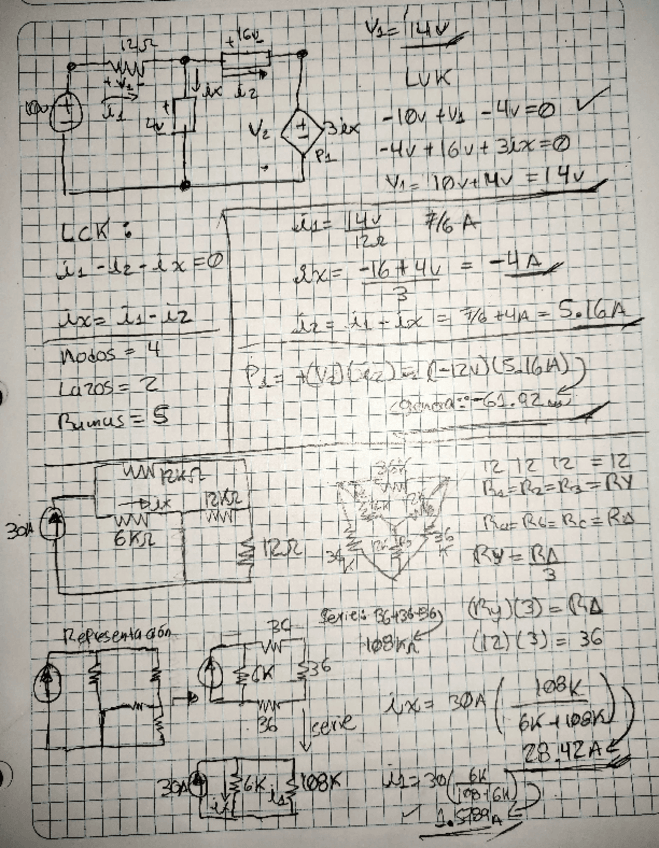 12Ω
+ V1 -
i1
10v
+
4v
ix
+16v-
i2
V2
3ix
P1
V1 = 14v
LVK
-10v + V1 - 4v = 0 ✓
-4v + 16v + 3ix = 0
V1 = 10v + 4v = 14v
LCK:
i1 - i2 - ix = 0
ix = i1 - i2
Nodos = 4
Lazos = 2
Ramas = 5
i1 = 14v / 12Ω 7/6 A
ix = -16 + 4v / 3 = -4A
i2 = i1 - ix = 7/6 + 4A = 5.16A
P1 = +(V2)(i2) = (-12v)(5.16A)
Genera = -61.92 w
12KΩ
ix
12KΩ
30A
6KΩ
12Ω
36K
36K
36K
12 12 12 = 12
R1 = R2 = R3 = RY
Ra = Rb = Rc = RΔ
RY = RΔ / 3
(RY)(3) = RΔ
(12)(3) = 36
Representación
36
6K
36
36
Serie: 36+36+36
108KΩ
serie
ix = 30A ( 108K / 6K + 108K )
28.42A
30A
6K
i1
108K
i1 = 30 ( 6K / 108 + 6K )
✓ 1.5789A